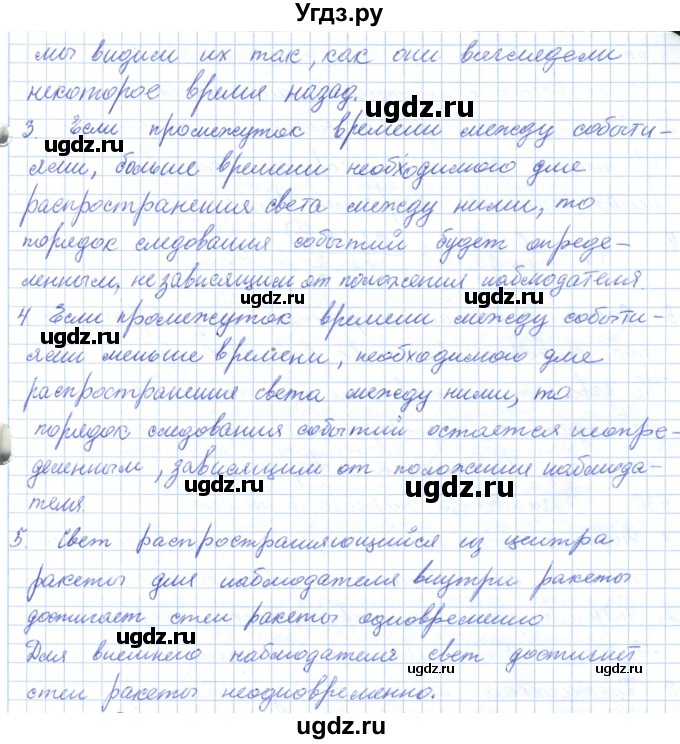 Угдз.ру
мы видим их так, как они выглядели
некоторое время назад.
ugdz.ru
3. Если промежуток времени между событи-
ugdz.ru
ugdz.ru
ями, больше времени необходимого для
распространения света между ними, то
порядок следования событий будет опреде-
ленным, независящим от положения наблюдателя
ugdz.ru
ugdz.ru
4 Если промежуток времени между событи-
ugdz.ru
ями меньше времени, необходимого для
распространения света между ними, то
порядок следования событий остается неопре-
деленным, зависящим от положения наблюда-
ugdz.ru
ugdz.ru
теля.
5. Свет распространяющийся из центра
ракеты для наблюдателя внутри ракеты
достигает стен ракеты одновременно
ugdz.ru
Для внешнего наблюдателя свет достигнет
ugdz.ru
ugdz.ru
стен ракеты неодновременно.
ugdz.ru